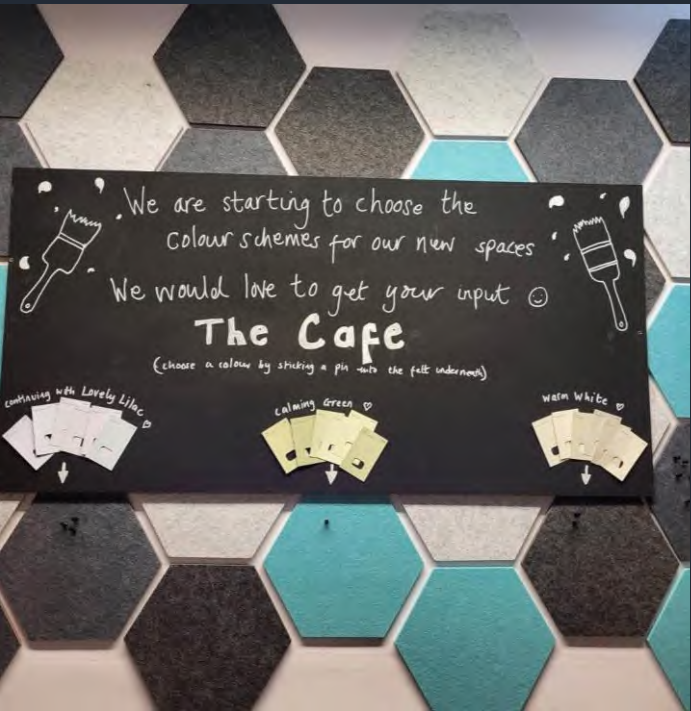 We are starting to choose the
colour schemes for our new spaces
We would love to get your input
The Cafe
(choose a colour by sticking a pin into the felt underneath)
continuing with Lovely Lilac
Calming Green
Warm White